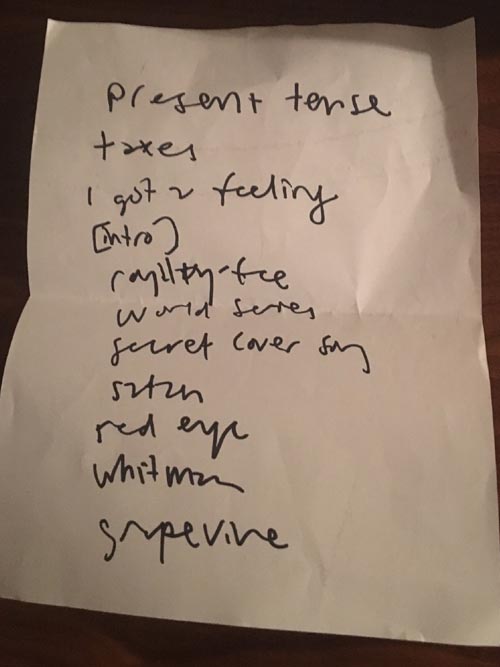 present tense
taxes
I got a feeling
[intro]
royalty-free
world series
secret cover song
satan
red eye
whitman
grapevine